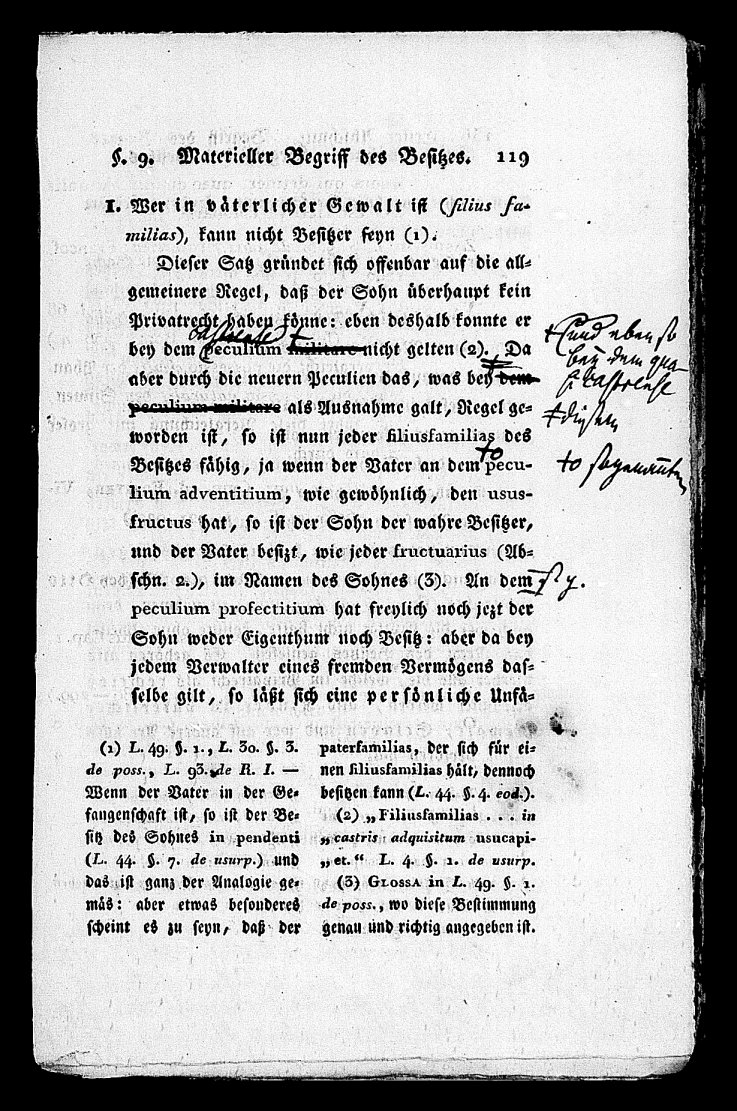 §. 9. Materieller Begriff des Besitzes. 119
I. Wer in väterlicher Gewalt ist (filius fa-
milias), kann nicht Besitzer seyn (1).
Dieser Satz gründet sich offenbar auf die all-
gemeinere Regel, daß der Sohn überhaupt kein
Privatrecht haben könne: eben deshalb konnte er
castrense
bey dem peculium militare nicht gelten (2). Da
aber durch die neuern Peculien das, was bey dem
peculium militare als Ausnahme galt, Regel ge-
worden ist, so ist nun jeder filiusfamilias des
Besitzes fähig, ja wenn der Vater an dem pecu-
lium adventitium, wie gewöhnlich, den usus-
fructus hat, so ist der Sohn der wahre Besitzer,
und der Vater besizt, wie jeder fructuarius (Ab-
schn. 2.), im Namen des Sohnes (3). An dem
peculium profectitium hat freylich noch jezt der
Sohn weder Eigenthum noch Besitz: aber da bey
jedem Verwalter eines fremden Vermögens das-
selbe gilt, so läßt sich eine persönliche Unfä-
und eben so
bey dem qua-
si castrense
diesem
sogenannten
(1) L. 49. §. 1., L. 30. §. 3.
de poss., L. 93. de R. I. —
Wenn der Vater in der Ge-
fangenschaft ist, so ist der Be-
sitz des Sohnes in pendenti
(L. 44. §. 7. de usurp.) und
das ist ganz der Analogie ge-
mäs: aber etwas besonderes
scheint es zu seyn, daß der
paterfamilias, der sich für ei-
nen filiusfamilias hält, dennoch
besitzen kann (L. 44. §. 4. eod.).
(2) „Filiusfamilias . . . in
„castris adquisitum usucapi-
„et.“ L. 4. §. 1. de usurp.
(3) GLOSSA in L. 49. §. 1.
de poss., wo diese Bestimmung
genau und richtig angegeben ist.